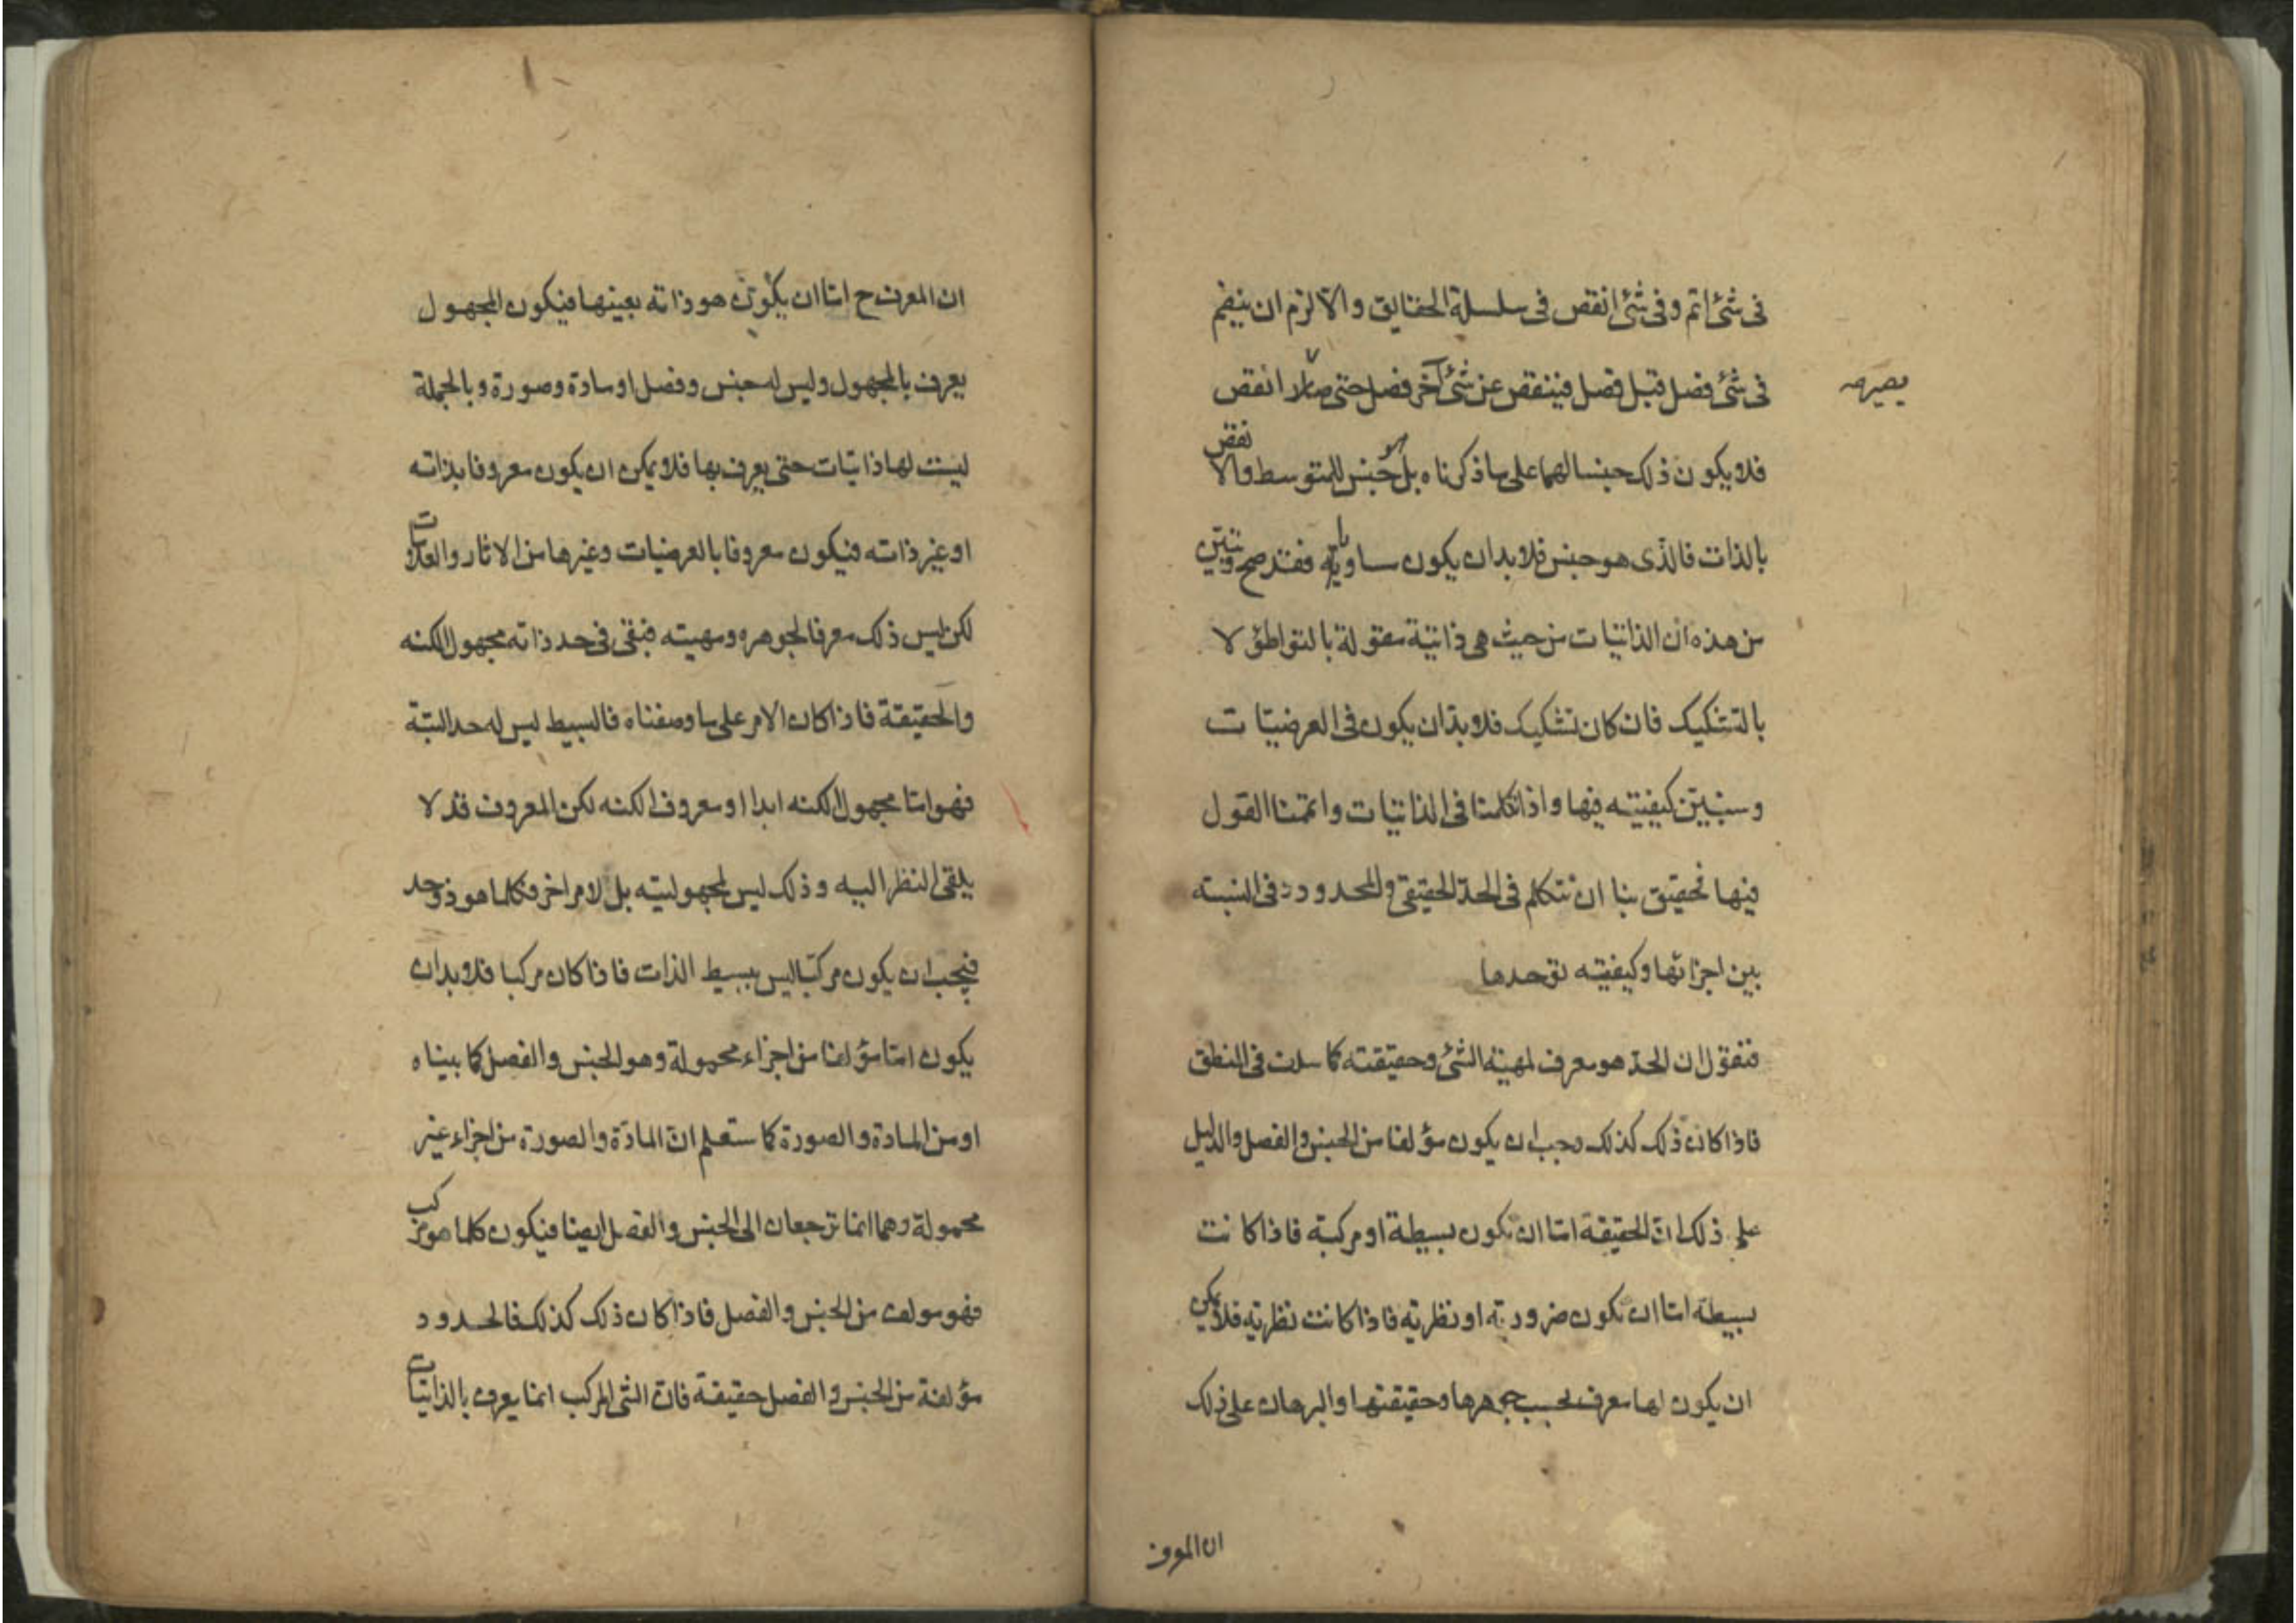 فى شئ اتم وفى شئ انقص فى سلسلة الحقايق والا لزم ان ينضم
فى شئ فصل قبل فصل فينقص عن شئ آخر فصل حتى صار انقص
يصير صه
فلا يكون ذلك جنسا لهما على ما ذكرناه بل هو جنس للمتوسط والانقص
بالذات فالذى هو جنس فلا بد ان يكون ساويا فقد صح وتبين
من هذه ان الذاتيات من حيث هى ذاتية مقولة بالتواطؤ لا
بالتشكيك فان كان تشكيك فلا بد ان يكون فى العرضيات
وسنبين كيفيته فيها واذا تكلمنا فى الذاتيات واتممنا القول
فيها تحقيق بنا ان نتكلم فى الحد الحقيقى والمحدود وفى النسبته
بين اجزائها وكيفيته توحدها
فنقول ان الحد هو معرف لمهية الشئ وحقيقته كما سلف فى المنطق
فاذا كان ذلك كذلك وجب ان يكون مؤلفا من الجنس والفصل والدليل
على ذلك ان الحقيقة اما ان تكون بسيطة او مركبة فاذا كانت
بسيطة اما ان تكون ضرورية او نظرية فاذا كانت نظرية فلا يمكن
ان يكون لها معرف بحسب جوهرها وحقيقتها والبرهان على ذلك
ان المعرف
ان المعرف ح اما ان يكون هو ذاته بعينها فيكون المجهول
يعرف بالمجهول وليس له جنس وفصل او مادة وصورة وبالجملة
ليست لها ذاتيات حتى يعرف بها فلا يمكن ان يكون معروفا بذاته
او غير ذاته فيكون معروفا بالعرضيات وغيرها من الاثار والعلامات
لكن ليس ذلك معرفا لجوهره ومهيته فبقى فى حد ذاته مجهول الكنه
والحقيقة فاذا كان الامر على ما وصفناه فالبسيط ليس له حد البتة
فهو اما مجهول الكنه ابدا او معروف الكنه لكن المعروف قد لا
يلقى النظر اليه وذلك ليس لمجهوليته بل لامر اخر فكلما هو ذو حد
فيجب ان يكون مركبا ليس ببسيط الذات فاذا كان مركبا فلا بد ان
يكون اما مؤلفا من اجزاء محمولة وهو الجنس والفصل كما بيناه
او من المادة والصورة كما ستعلم ان المادة والصورة من اجزاء غير
محمولة وهما انما ترجعان الى الجنس والفصل ايضا فيكون كلما هو مركب
فهو مولف من الجنس والفصل فاذا كان ذلك كذلك فالحدود
مؤلفة من الجنس والفصل حقيقة فان الشئ المركب انما يعرف بالذاتيات